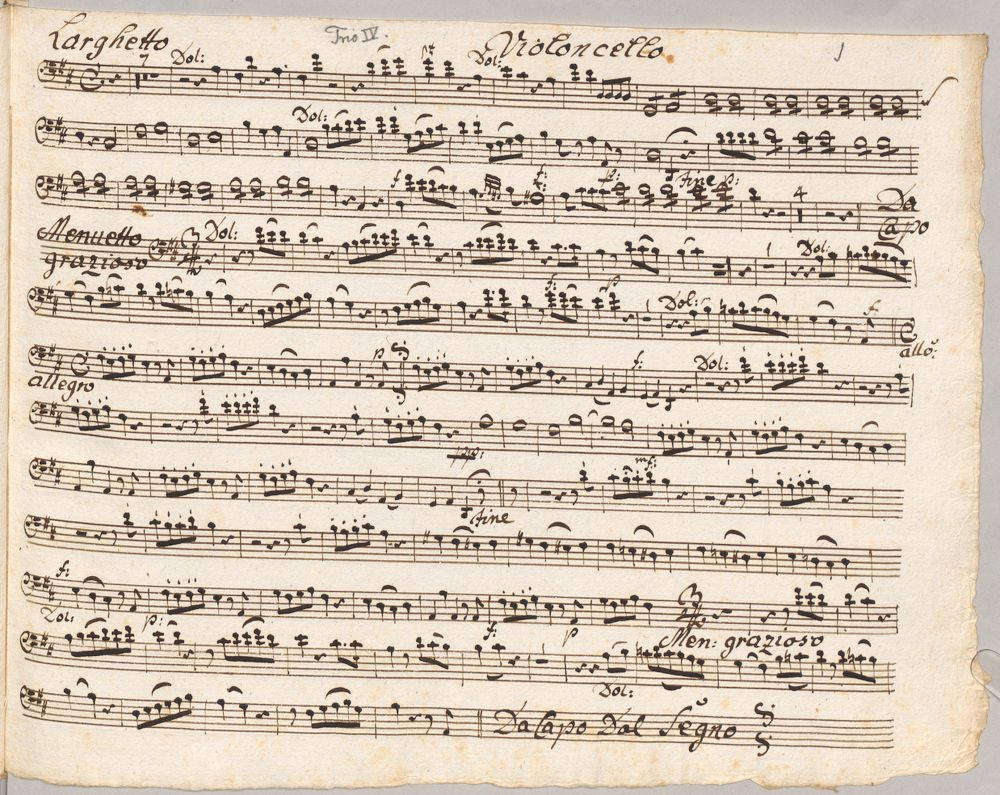 Larghetto Trio IV. Violoncello 1
7 Dol: Dol:
Dol:
f f: p: fine p: 4 Da Capo
Menuetto grazioso 3 Dol: Dol:
f: p Dol: f
allo:
p f: Dol:
allegro
pp:
mf:
fine
f: 3
Men: grazioso
Dol: p: f: p
Dol:
Da Capo Dal Segno